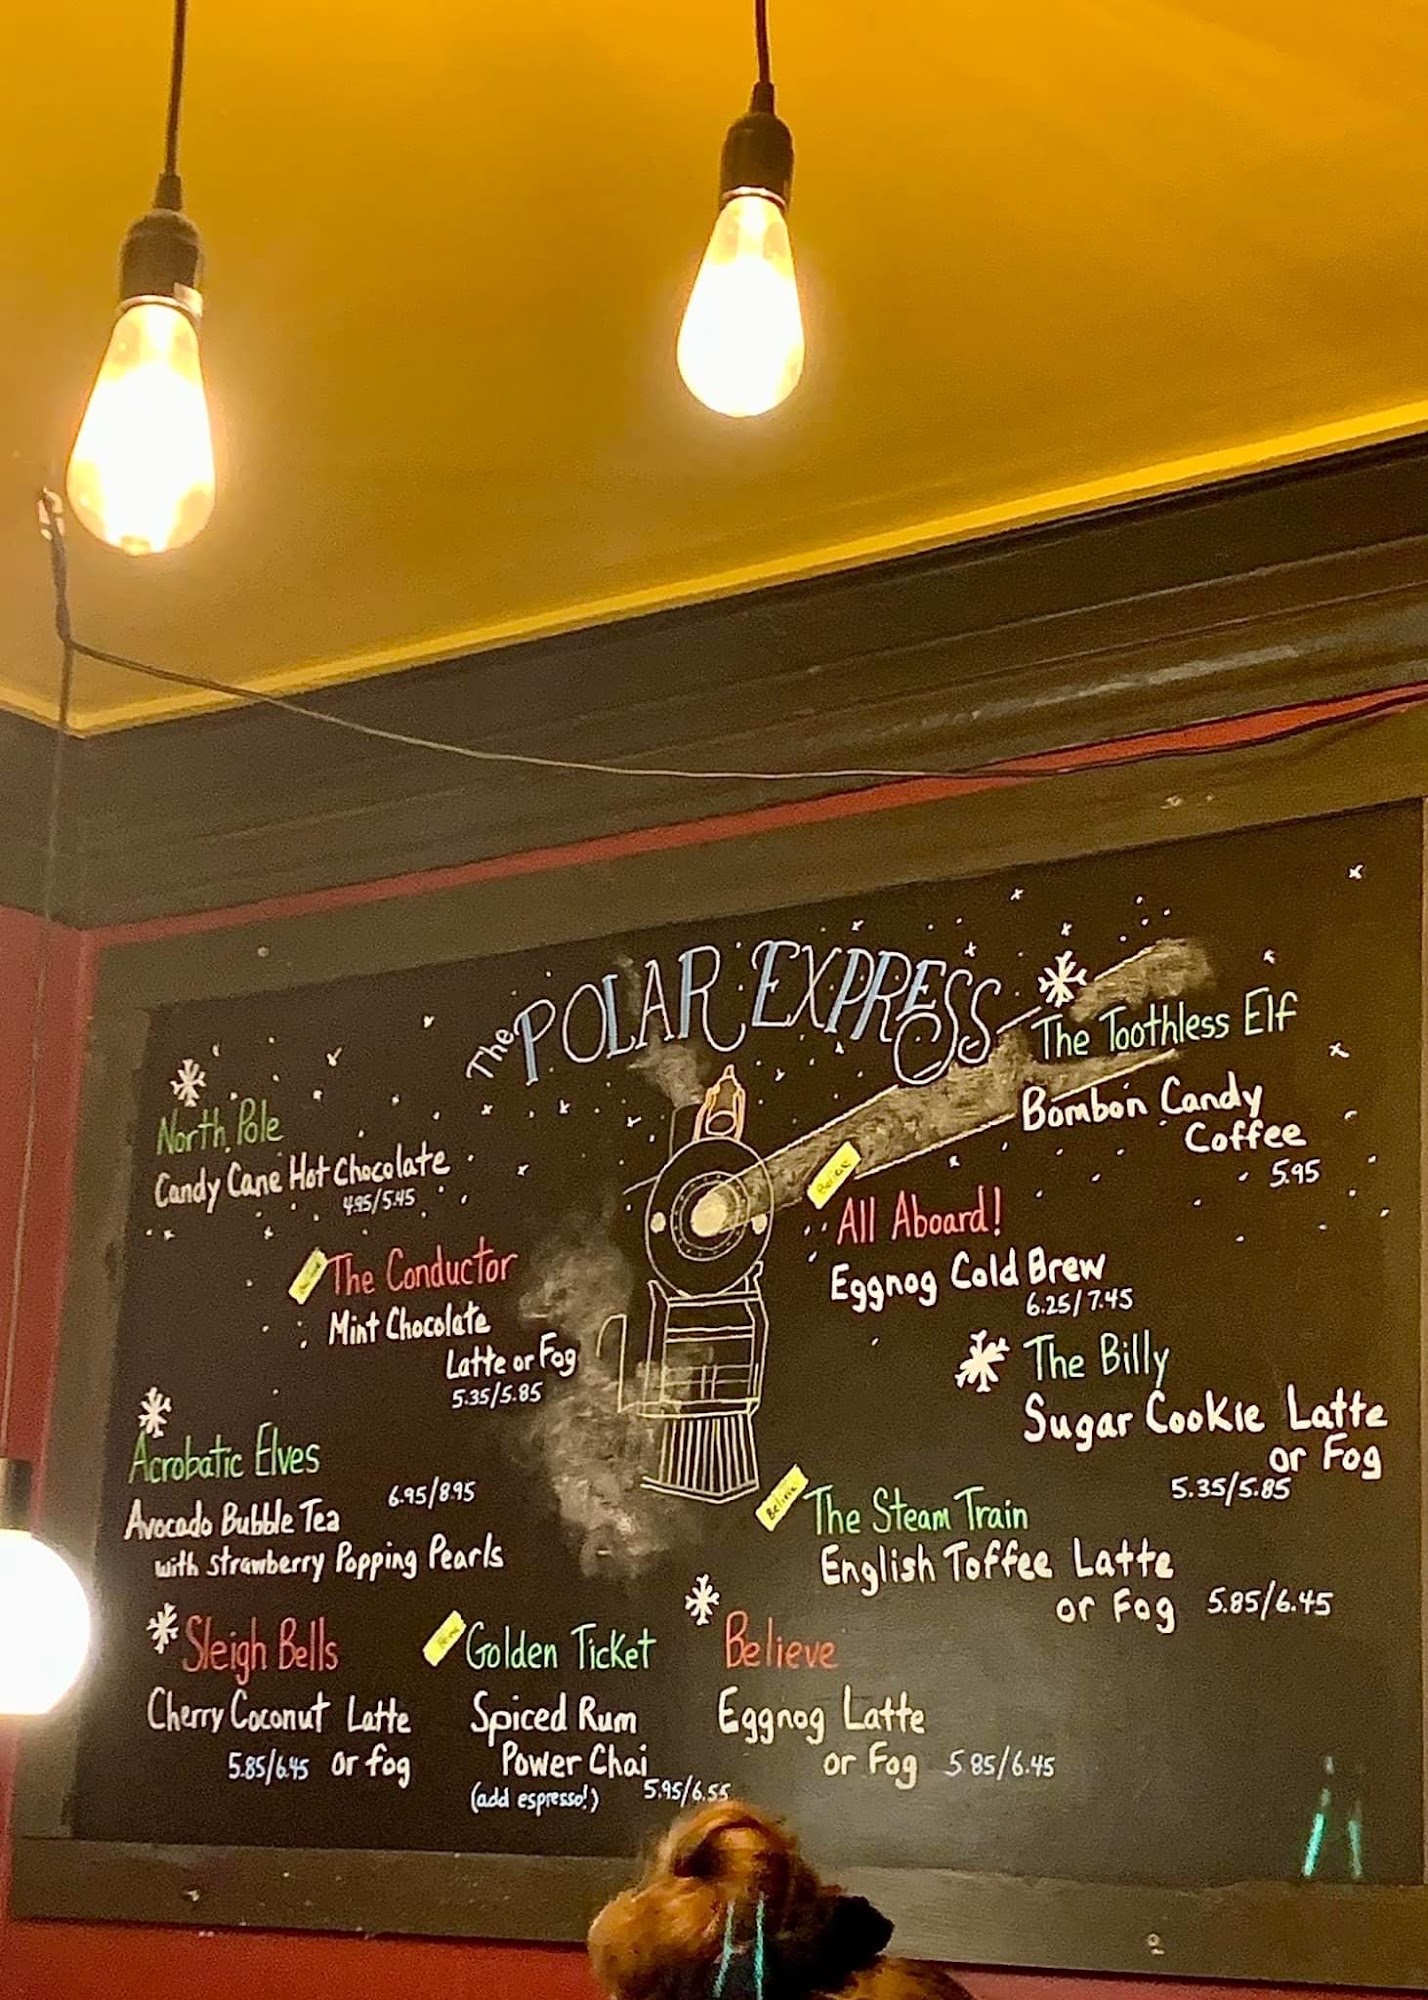 The POLAR EXPRESS
North Pole
Candy Cane Hot Chocolate
4.95/5.45
The Conductor
Mint Chocolate
Latte or Fog
5.35/5.85
Acrobatic Elves
6.95/8.95
Avocado Bubble Tea
with Strawberry Popping Pearls
Sleigh Bells
Cherry Coconut Latte
5.85/6.45 or fog
Golden Ticket
Spiced Rum
Power Chai
(add espresso!) 5.95/6.55
Believe
Eggnog Latte
or Fog 5.85/6.45
The Toothless Elf
Bombon Candy
Coffee
5.95
Believe
All Aboard!
Eggnog Cold Brew
6.25/7.45
The Billy
Sugar Cookie Latte
or Fog
5.35/5.85
Believe
The Steam Train
English Toffee Latte
or Fog 5.85/6.45